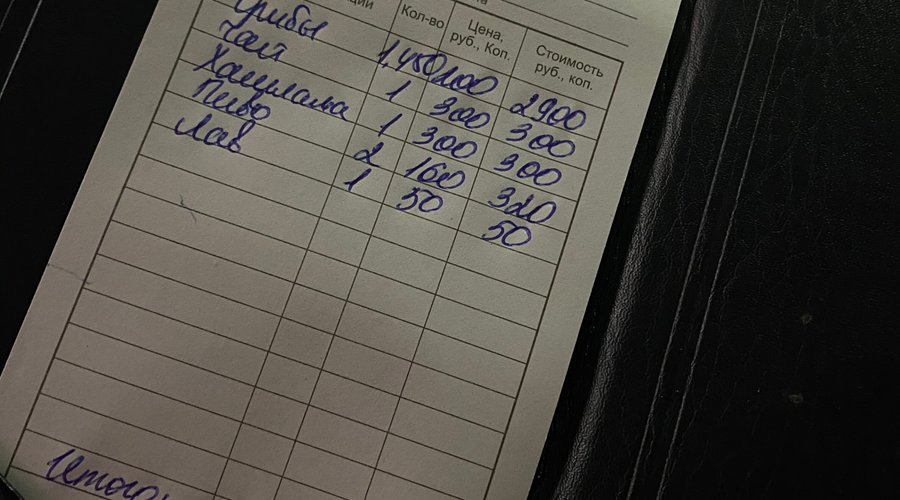 ции Кол-во Цена, руб., Коп. Стоимость руб., коп.
Грибы 1,450 200 2900
Чай 1 300 300
Хашлама 1 300 300
Пиво 2 160 320
Лав 1 50 50
Итого